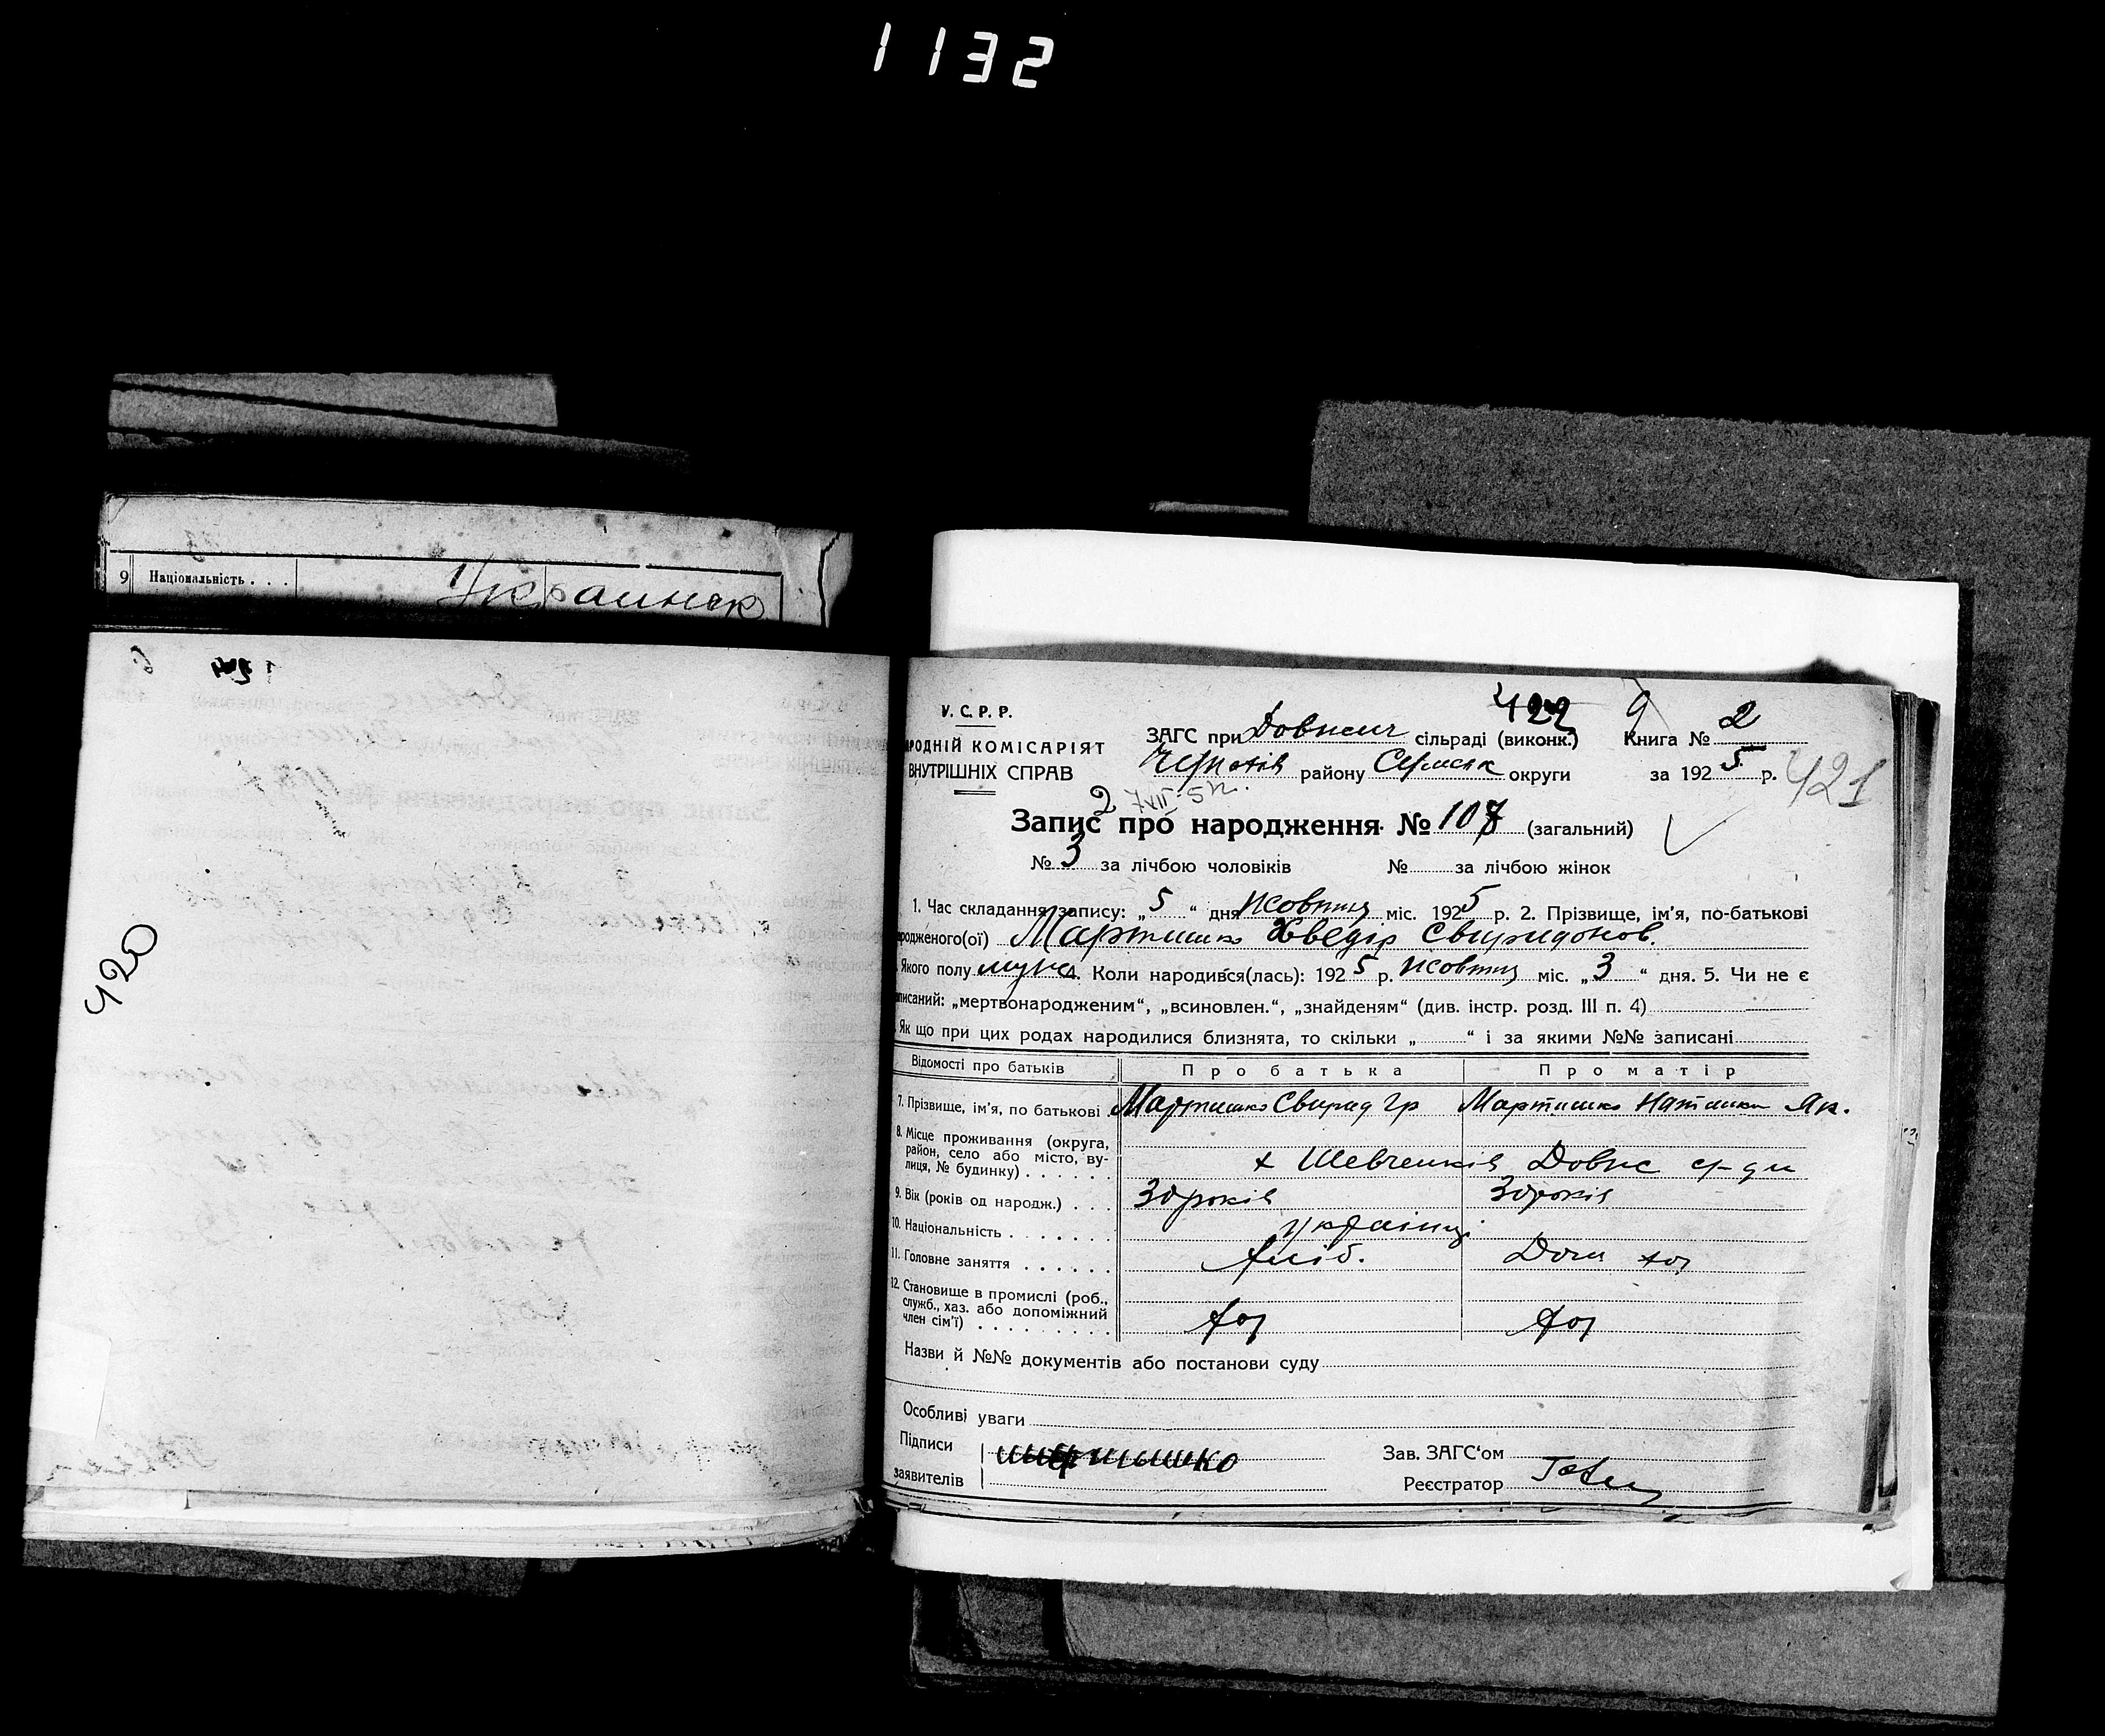 1132
9 Національність . . .
420
У. С. Р. Р.
РОДНІЙ КОМІСАРІЯТ
ВНУТРІШНІХ СПРАВ
422 9
ЗАГС при сільраді (виконк.) Книга № 2
району округи за 1925 р.
421
Запис про народження № 107 (загальний)
№ 3 за лічбою чоловіків № за лічбою жінок
1. Час складання запису: „5“ дня Жовтня міс. 1925 р. 2. Прізвище, ім'я, по-батькові
родженого(ої) Мартишко Хведір Свиридонов.
Якого полу муж 4. Коли народився(лась): 1925 р. Жовтня міс. „3“ дня. 5. Чи не є
писаний: „мертвонародженим“, „всиновлен.“, „знайденям“ (див. інстр. розд. III п. 4)
Як що при цих родах народилися близнята, то скільки „ “ і за якими №№ записані
Відомості про батьків Про батька Про матір
7. Прізвище, ім'я, по батькові Мартишко Свирид Гр Мартишко Як.
8. Місце проживання (округа,
район, село або місто, ву-
лиця, № будинку) . . . . . . х Шевченків Довж
9. Вік (років од народж.) . . . 30 років 30 років
10. Національність . . . . . . . українці
11. Головне заняття . . . . . . хліб. Дом
12. Становище в промислі (роб.,
служб., хаз. або допоміжний
член сім'ї) . . . . . . . . .
Назви й №№ документів або постанови суду
Особливі уваги
Підписи мартишко Зав. ЗАГС'ом
заявителів Реєстратор